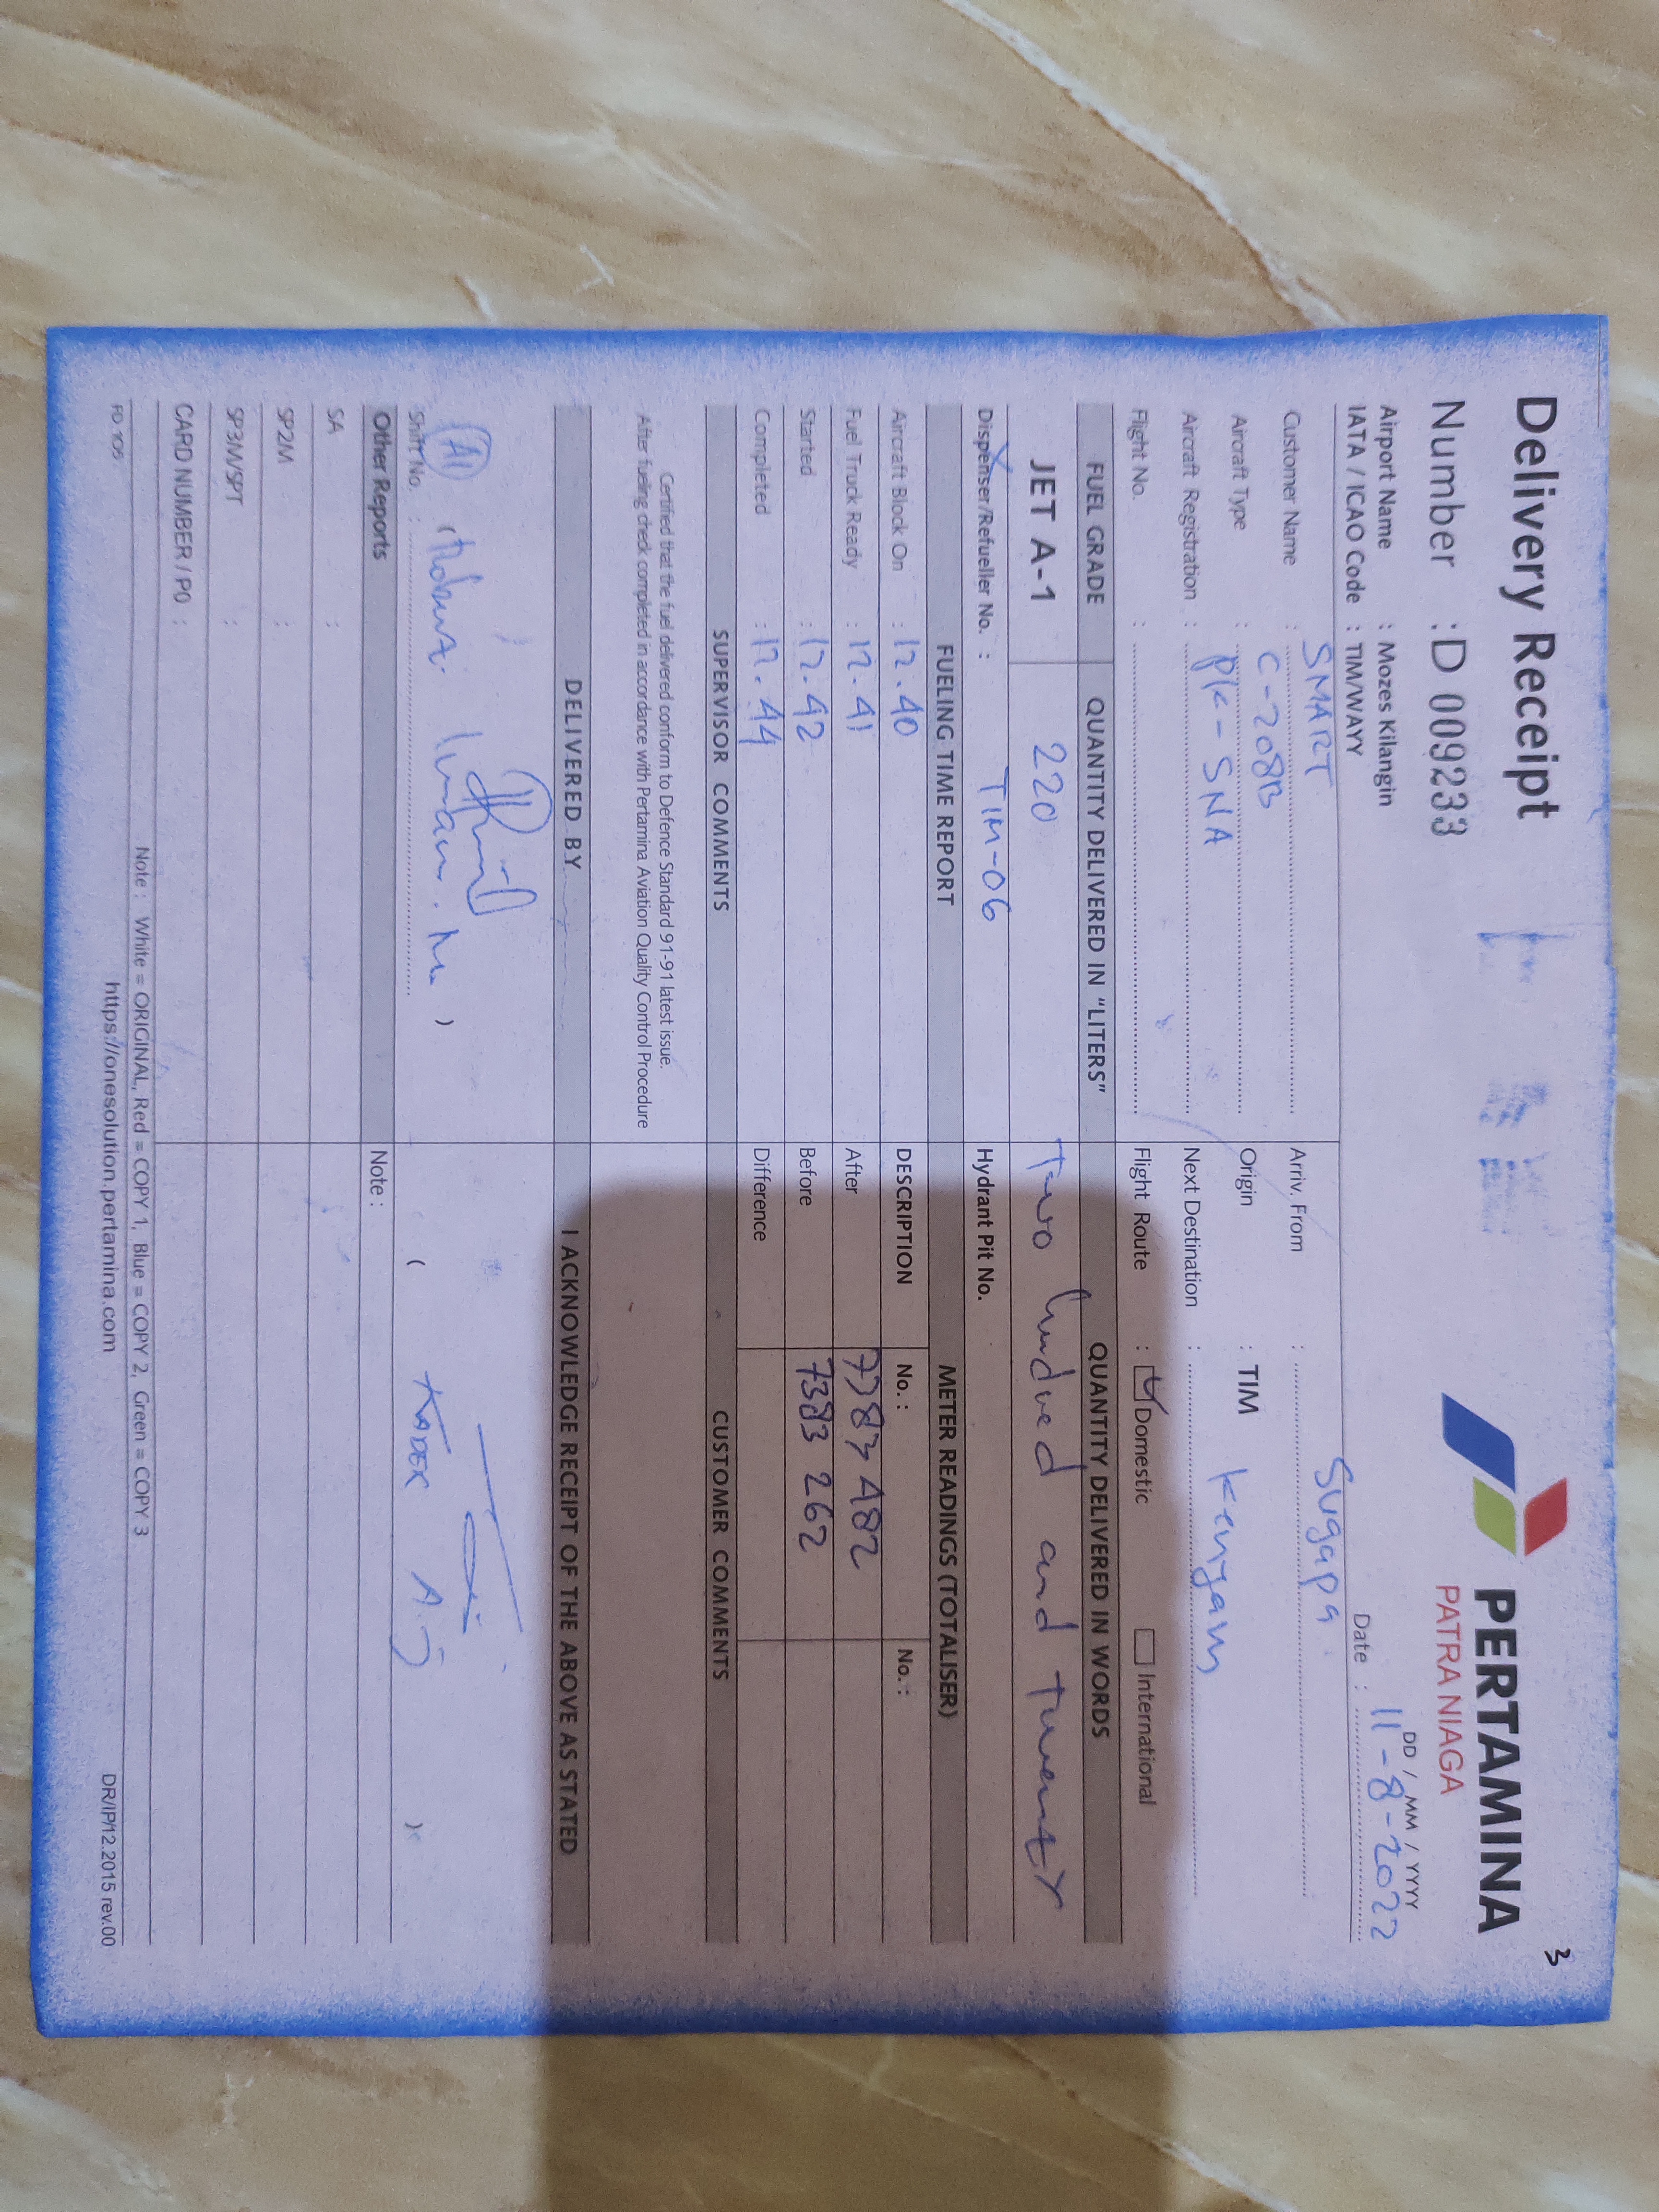 3
Delivery Receipt
PERTAMINA
PATRA NIAGA
Number : D 009233
DD / MM / YYYY
Date : 11-8-2022
Airport Name : Mozes Kilangin
IATA / ICAO Code : TIM/WAYY
Customer Name : SMART
Arriv. From : Sugapa
Aircraft Type : C-208B
Origin : TIM
Aircraft Registration : PK-SNA
Next Destination :
Flight No. :
Flight Route : Domestic International
FUEL GRADE QUANTITY DELIVERED IN "LITERS" QUANTITY DELIVERED IN WORDS
JET A-1 220 Two hundred and twenty
Dispenser/Refueller No. : TIM-06 Hydrant Pit No.
FUELING TIME REPORT METER READINGS (TOTALISER)
Aircraft Block On : 12.40 DESCRIPTION No. : No. :
Fuel Truck Ready : 12.41 After 7383 482
Started : 12.42 Before 7383 262
Completed : 12.44 Difference
SUPERVISOR COMMENTS CUSTOMER COMMENTS
Certified that the fuel delivered conform to Defence Standard 91-91 latest issue.
After fueling check completed in accordance with Pertamina Aviation Quality Control Procedure
DELIVERED BY I ACKNOWLEDGE RECEIPT OF THE ABOVE AS STATED
( KADEK A.J )
Shift No. :
Other Reports Note :
SA :
SP2M :
SP3M/SPT :
CARD NUMBER / PO :
Note : White = ORIGINAL, Red = COPY 1, Blue = COPY 2, Green = COPY 3
FD 105 https://onesolution.pertamina.com DR/IP/12.2015 rev.00